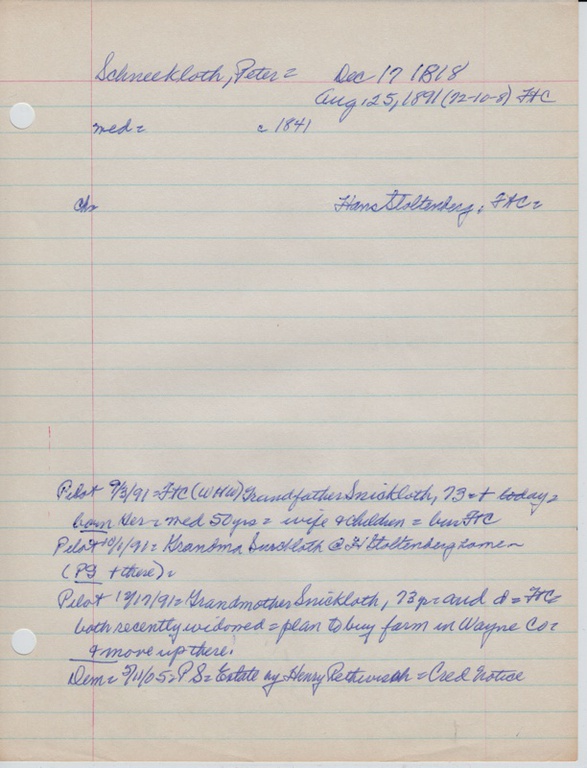 Schneekloth, Peter = Dec 17 1818
Aug 25, 1891 (72-10-8) FtC
med = c 1841
ch = Hans Stoltenberg, FtC =
Pilot 9/3/91 = FtC (WHW) Grandfather Snickloth, 73 = + today =
born Ger = med 50 yrs = wife & children = bur FtC
Pilot 10/1/91 = Grandma Snickloth @ H Stoltenberg home -
(PS + there) =
Pilot 12/17/91 = Grandmother Snickloth, 73 yr = and d = FtC =
both recently widowed = plan to buy farm in Wayne Co =
& move up there.
Dem = 5/11/05 = PS = Estate by Henry Rethwisch = Cred Notice